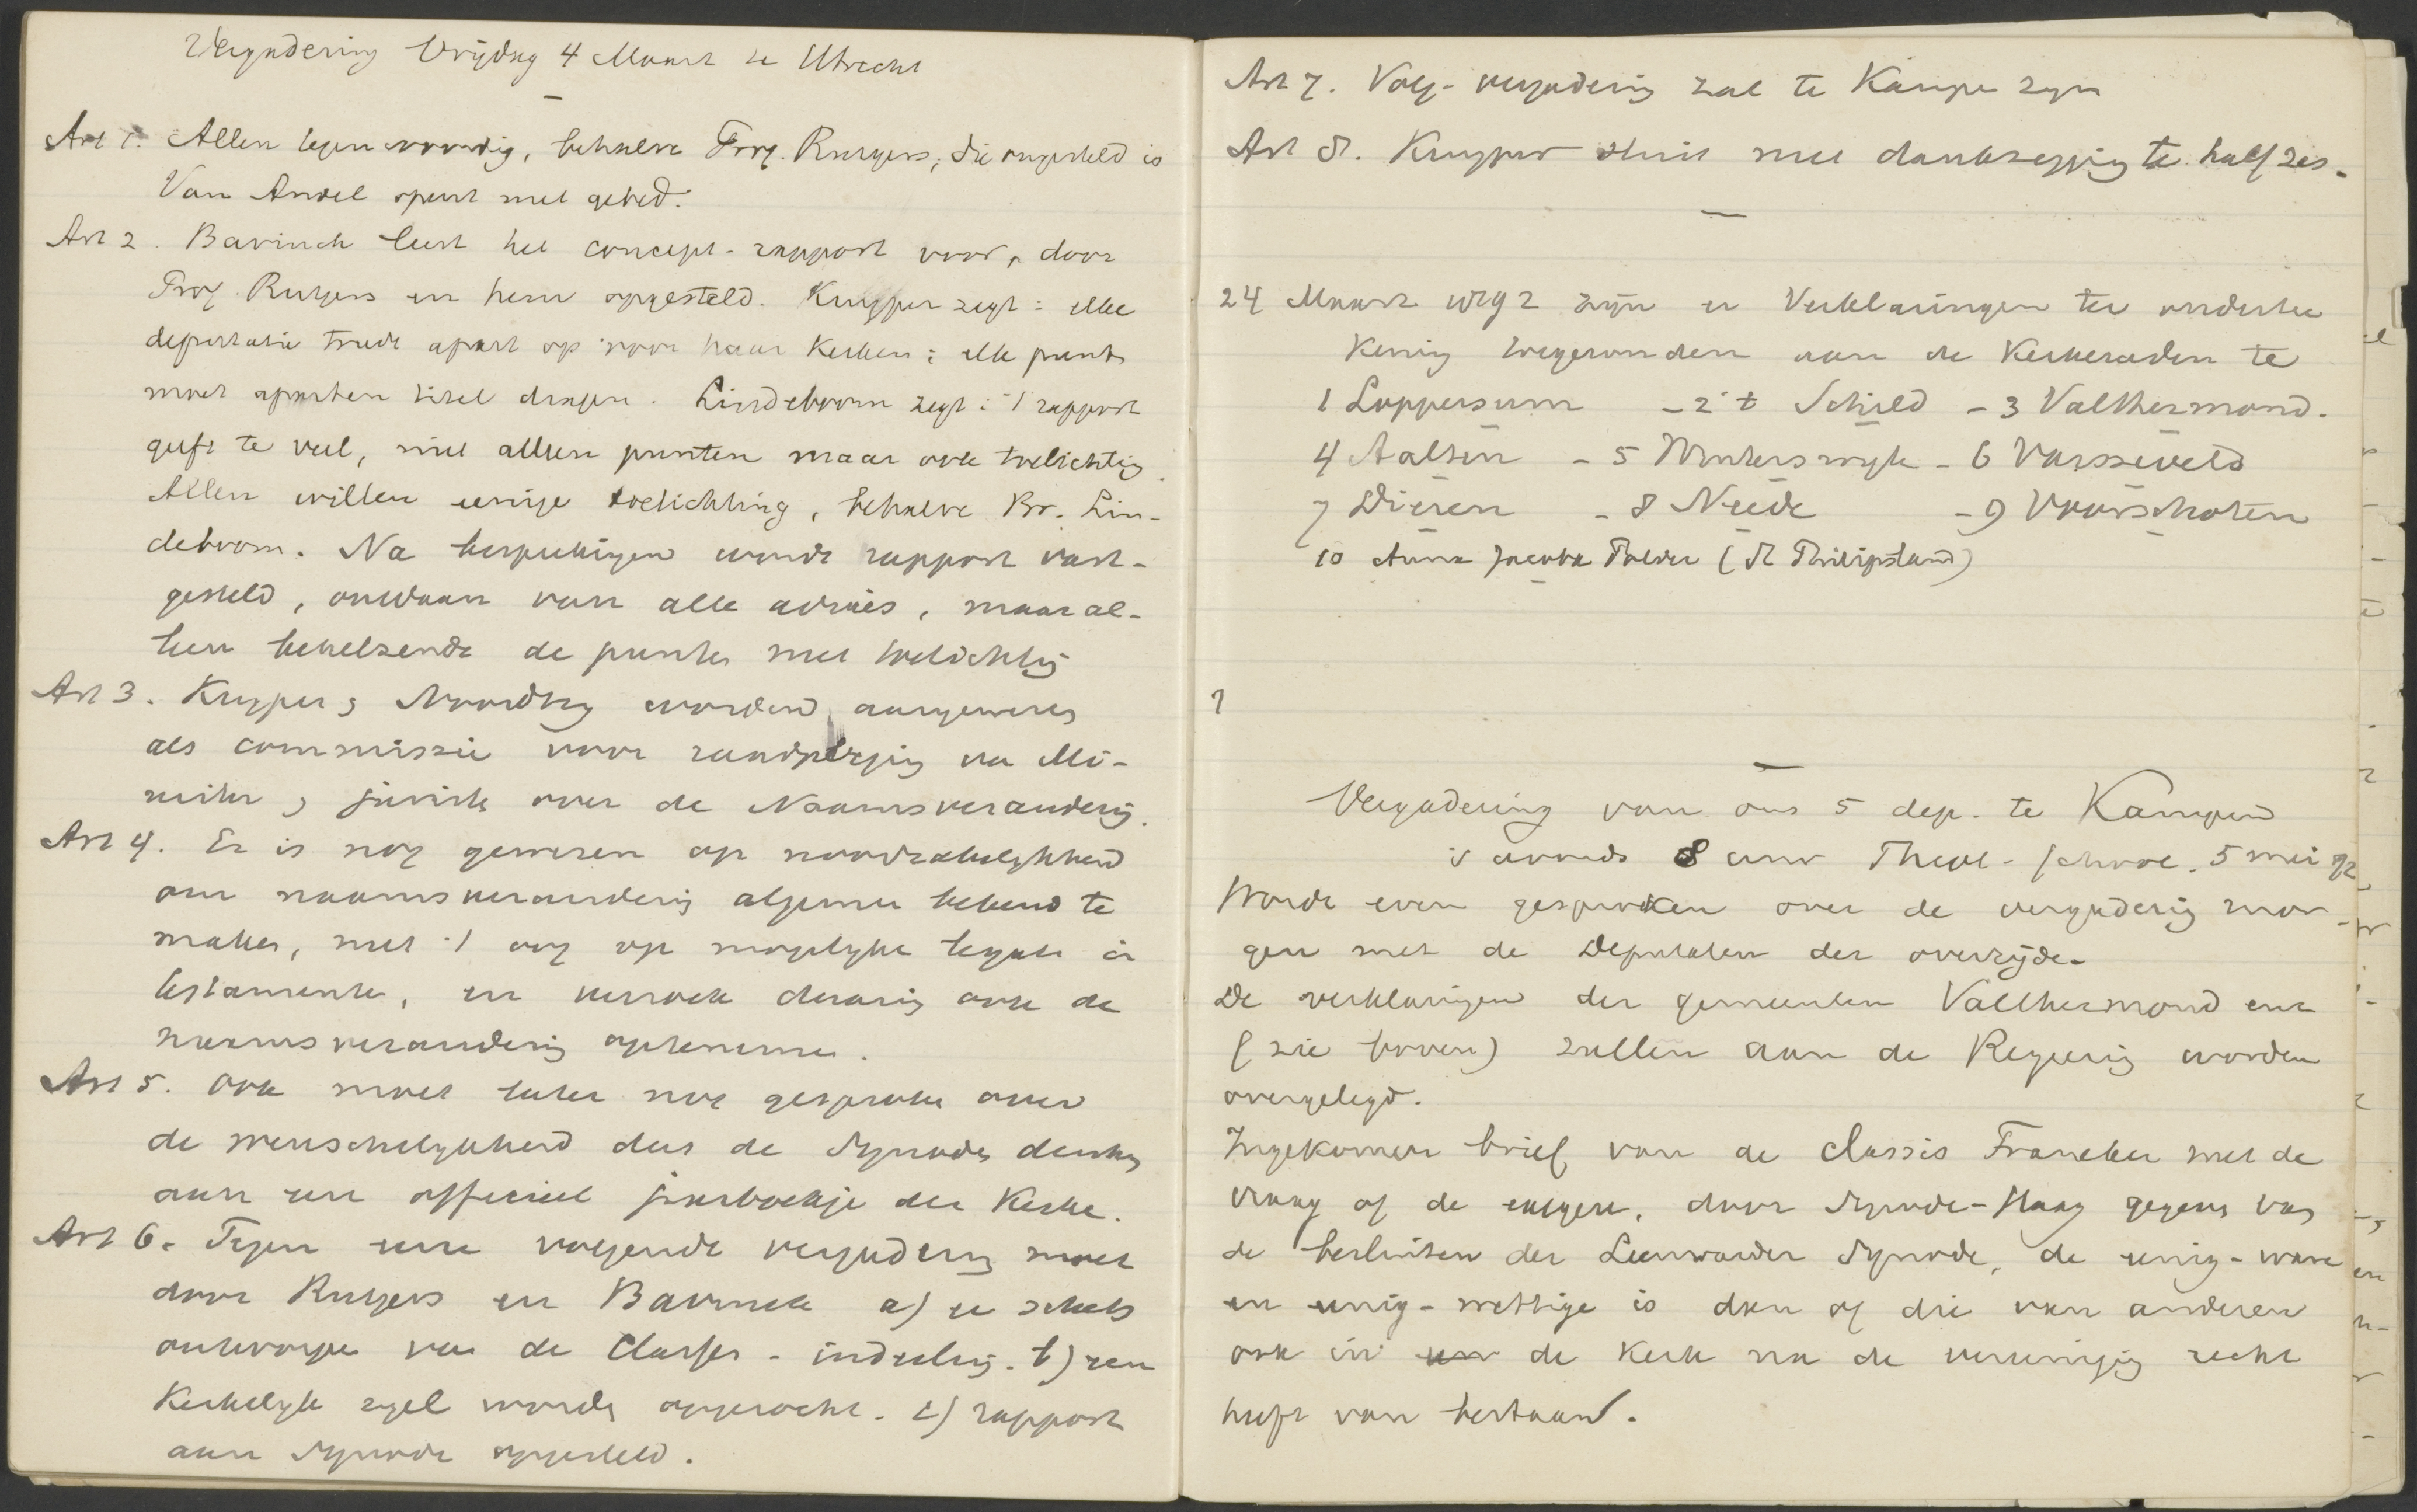 Vergadering Vrijdag 4 Maart te Utrecht
Art 1. Allen tegenwoordig, behalve Prof. Rutgers, die ongesteld is
Van Andel opent met gebed.
Art 2. Bavinck leest het concept-rapport voor, door
Prof Rutgers en hem opgesteld. Kuyper zegt: elke
deputatie trede apart op voor haar Kerken; elk punt
moet aparten titel dragen. Lindeboom zegt: 't rapport
geeft te veel, niet alleen punten maar ook toelichting.
Allen willen eenige toelichting, behalve Br. Lin-
deboom. Na besprekingen wordt rapport vast-
gesteld, ontdaan van alle advies, maar al-
leen behelzende de punten met toelichting
Art 3. Kuyper & Noordtzij worden aangewezen
als commissie voor raadpleging van Mi-
nister & jurist over de Naamsverandering.
Art 4. Er is nog gewezen op noodzakelijkheid
om naamsverandering algemeen bekend te
maken, met 't oog op mogelijke legaten in
testamenten, en verzoek daarin ook de
naamsverandering opteneme.
Art 5. Ook moet later nog gesproke over
de wenschelijkheid dat de Synode denke
aan een officieel jaarboekje der Kerke.
Art 6. Tegen eene volgende vergadering moet
door Rutgers en Bavinck a) ee schets
ontworpe van de Classes-indeeling. b) een
Kerkelijk zegel worde opgezocht. c) rapport
aan Synode opgesteld.
Art 7. Volg-vergadering zal te Kampe zijn
Art 8. Kuyper sluit met dankzegging te half zes.
24 Maart 1892 zijn er Verklaringen ter onderteek
kening toegezonden aan de Kerkeraden te
1 Loppersum - 2 't Schild - 3 Valthermond.
4 Aalten - 5 Winterswijk - 6 Varsseveld
7 Dieren - 8 Neede - 9 Voorschoten
10 Anna Jacoba Polder (St Philipsland)
?
Vergadering van ons 5 dep. te Kampen
's avonds 8 uur Theol-School. 5 mei 92
Wordt even gesproken over de vergadering mor-
gen met de Deputaten der overzijde.
De verklaringen der gemeenten Valthermond enz
(zie boven) zullen aan de Regering worden
overgelegd.
Ingekomen brief van de classis Franeker met de
vraag of de exegese, door Synode-Haag gegeve van
de besluiten der Leeuwarder Synode, de eenig-ware
en eenig-wettige is dan of die van anderen
ook in de Kerk na de vereeniging recht
heeft van bestaan.